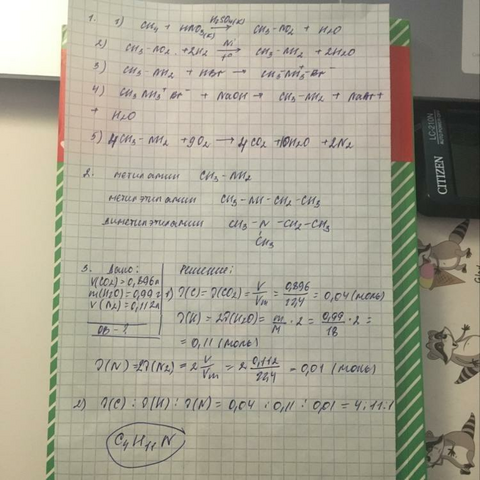 1. 1) CH₄ + HNO₃(к) →H₂SO₄(к) CH₃-NO₂ + H₂O
2) CH₃-NO₂ + 2H₂ →Ni t° CH₃-NH₂ + 2H₂O
3) CH₃-NH₂ + HBr → CH₃-NH₃⁺Br⁻
4) CH₃NH₃⁺Br⁻ + NaOH → CH₃-NH₂ + NaBr +
+ H₂O
5) 4CH₃-NH₂ + 9O₂ → 4CO₂ + 10H₂O + 2N₂
2. метиламин CH₃-NH₂
метилэтиламин CH₃-NH-CH₂-CH₃
диметилэтиламин CH₃-N-CH₂-CH₃
CH₃
3. Дано: Решение:
V(CO₂)=0,896л 1) ν(C)=ν(CO₂)= V/Vm = 0,896/22,4 = 0,04 (моль)
m(H₂O)=0,99г
V(N₂)=0,112л
ν(H)=2ν(H₂O)= m/M · 2 = 0,99/18 · 2 =
= 0,11 (моль)
ОВ-?
ν(N)=2ν(N₂) = 2 V/Vm = 2 0,112/22,4 = 0,01 (моль)
2) ν(C) : ν(H) : ν(N) = 0,04 : 0,11 : 0,01 = 4:11:1
C₄H₁₁N
CITIZEN
LC-210N